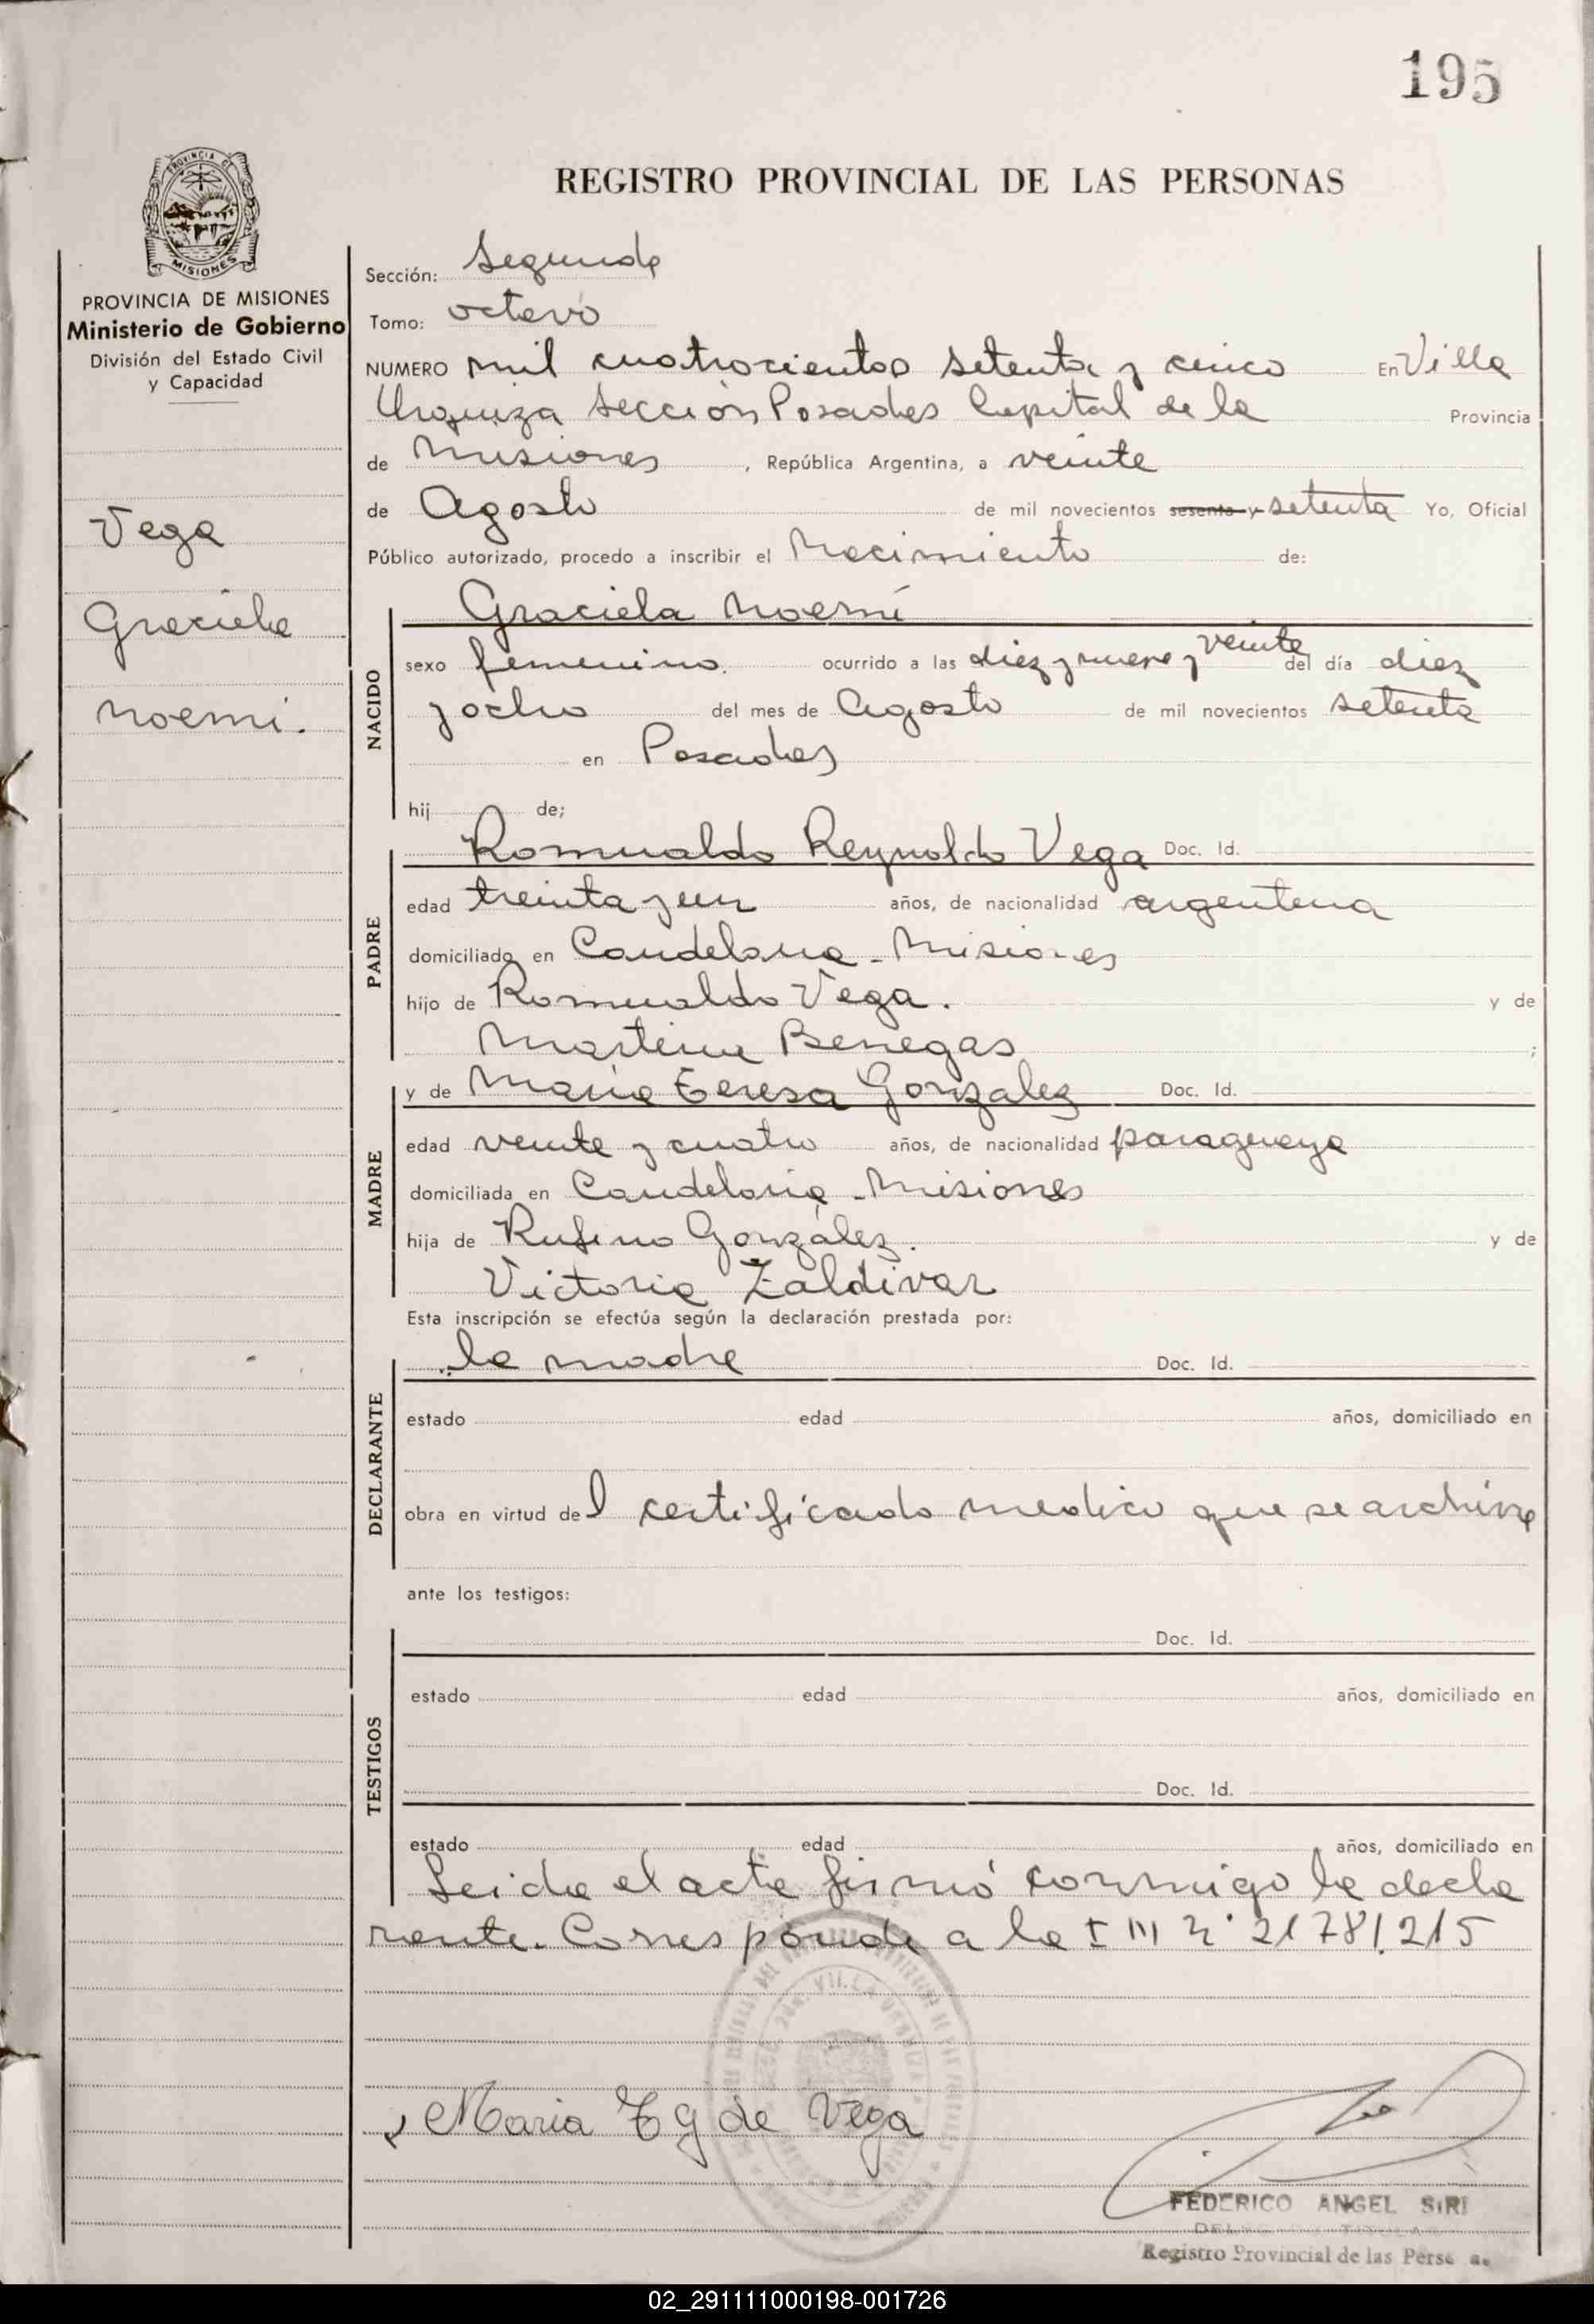 195
PROVINCIA DE
MISIONES
PROVINCIA DE MISIONES
Ministerio de Gobierno
División del Estado Civil
y Capacidad
Vega
Graciela
Noemi.
REGISTRO PROVINCIAL DE LAS PERSONAS
Sección: Segunda
Tomo: octavo
NUMERO mil cuatrocientos setenta y cinco En Villa
Urquiza Sección Posadas Capital de la Provincia
de Misiones, República Argentina, a veinte
de Agosto de mil novecientos sesenta y setenta Yo, Oficial
Público autorizado, procedo a inscribir el Nacimiento de:
Graciela Noemí
NACIDO
sexo femenino. ocurrido a las diez y nueve y veinte del día diez
y ocho del mes de Agosto de mil novecientos setenta
en Posadas
hij de;
Romualdo Reynoldo Vega Doc. Id.
PADRE
edad treinta y un años, de nacionalidad argentina
domiciliado en Candelaria - Misiones
hijo de Romualdo Vega. y de
Martina Benegas ;
y de María Teresa Gonzalez Doc. Id.
MADRE
edad veinte y cuatro años, de nacionalidad paraguaya
domiciliada en Candelaria - Misiones
hija de Rufino González. y de
Victoria Zaldivar
Esta inscripción se efectúa según la declaración prestada por:
la madre Doc. Id.
DECLARANTE
estado edad años, domiciliado en
obra en virtud del certificado medico que se archiva
ante los testigos:
Doc. Id.
TESTIGOS
estado edad años, domiciliado en
Doc. Id.
estado edad años, domiciliado en
Leida el acta firmó conmigo la decla
rante. Corresponde a la I M N° 21781.215
Maria T G de Vega
FEDERICO ANGEL SIRI
Registro Provincial de las Perso as
02_291111000198-001726